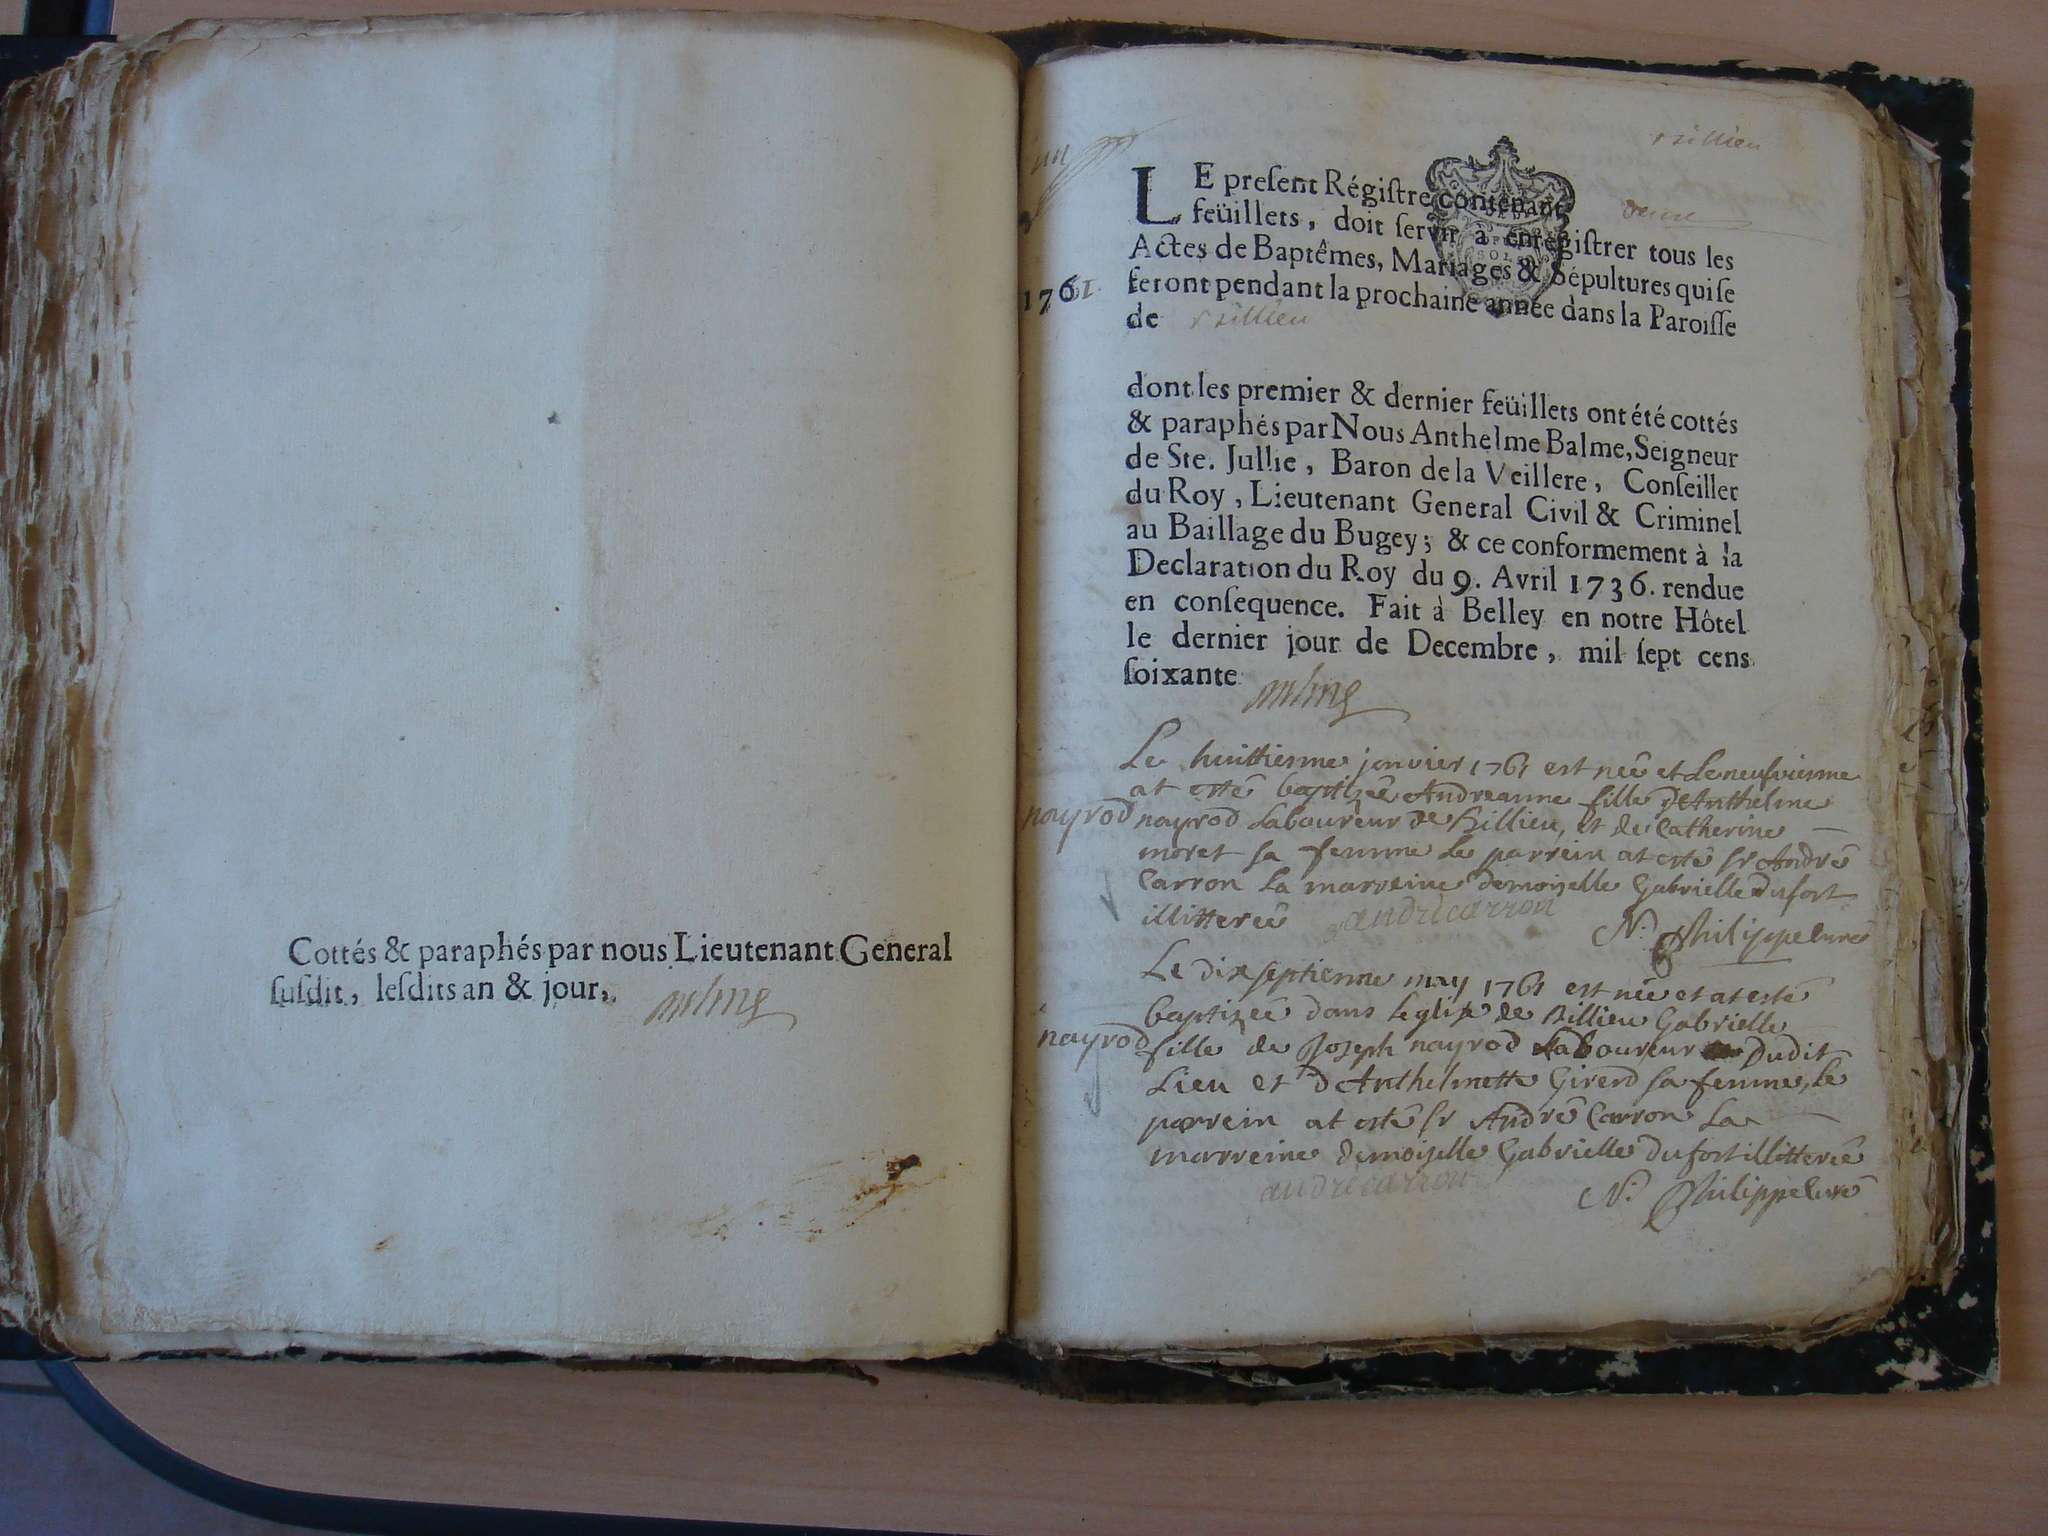 Cottés & paraphés par nous Lieutenant General
ſuſdit, leſdits an & jour,
un
rillieu
LE preſent Régiſtre contenant deux
feüillets, doit ſervir à enregiſtrer tous les
Actes de Baptêmes, Mariages & Sépultures qui ſe
1761.
feront pendant la prochaine année dans la Paroiſſe
de rillieu
dont les premier & dernier feüillets ont été cottés
& paraphés par Nous Anthelme Balme, Seigneur
de Ste. Jullie, Baron de la Veillere, Conſeiller
du Roy, Lieutenant General Civil & Criminel
au Baillage du Bugey; & ce conformement à la
Declaration du Roy du 9. Avril 1736. rendue
en conſequence. Fait à Belley en notre Hôtel
le dernier jour de Decembre, mil ſept cens
ſoixante
Le huittieme janvier 1761 est neé et le neufvieme
at esté baptizeé Andreanne fille d'Anthelme
nayrod
nayrod Laboureur de Billieu, et de Catherine
moret sa femme le parrein at esté sr André
Carron la marreine demoizelle Gabrielle Dufort
illittereé andré carron
N. Philippe Curé
Le dixseptieme may 1761 est neé et at esté
baptizeé dans leglize de Billieu Gabrielle
nayrod
fille de Joseph nayrod Laboureur Dudit
Lieu et d'Anthelmette Girerd sa femme, le
parrein at esté sr André Carron La
marreine demoizelle Gabrielle Dufort illittereé
andré carron
N. Philippe Curé